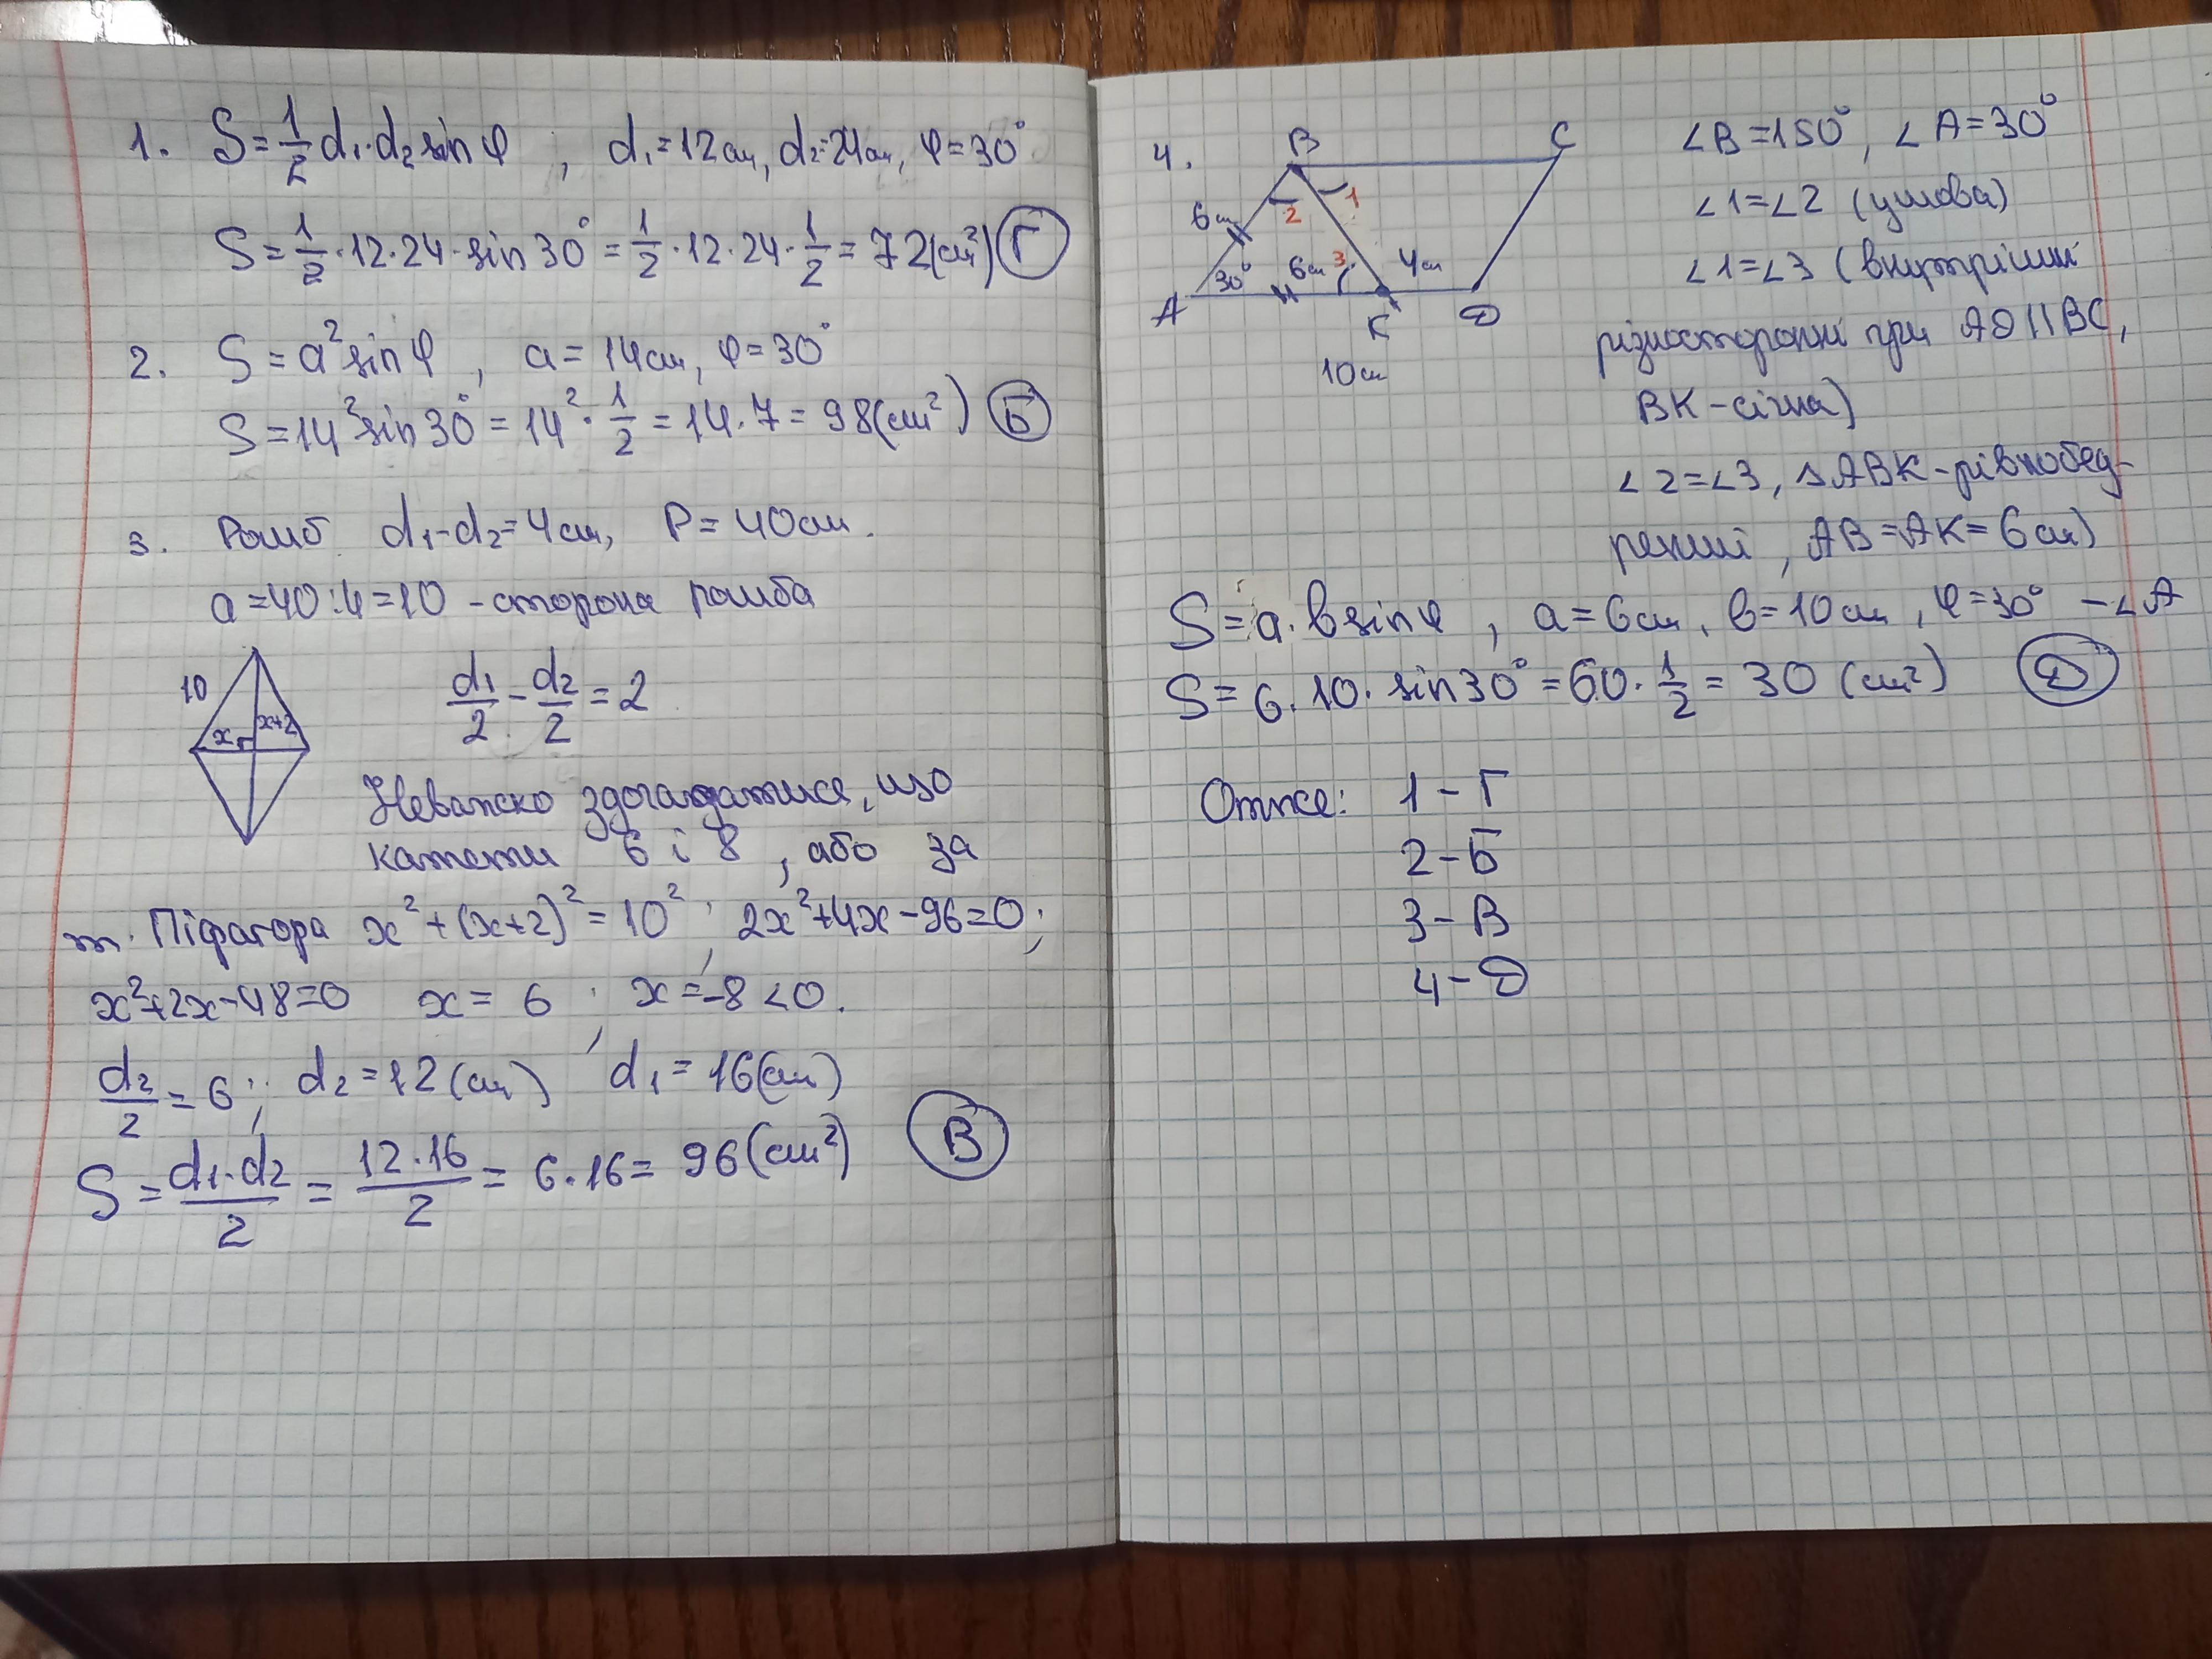 1. S = 1/2 d₁·d₂ sin φ , d₁ = 12 см, d₂ = 24 см, φ = 30°
S = 1/2 · 12 · 24 · sin 30° = 1/2 · 12 · 24 · 1/2 = 72 (см²) Г
2. S = a² sin φ , a = 14 см, φ = 30°
S = 14² sin 30° = 14² · 1/2 = 14 · 7 = 98 (см²) Б
3. Ромб d₁ - d₂ = 4 см, P = 40 см.
a = 40 : 4 = 10 - сторона ромба
10
x
x+2
d₁/2 - d₂/2 = 2
Неважко здогадатися, що
катети 6 і 8 , або за
т. Піфагора x² + (x+2)² = 10² ; 2x² + 4x - 96 = 0 ;
x² + 2x - 48 = 0 x = 6 ; x = -8 < 0.
d₂/2 = 6 ; d₂ = 12 (см) d₁ = 16 (см)
S = d₁·d₂/2 = 12·16/2 = 6·16 = 96 (см²) В
4.
B
C
6 см
2
1
30°
6 см
3
4 см
A
K
D
10 см
∠B = 150°, ∠A = 30°
∠1 = ∠2 (умова)
∠1 = ∠3 (внутрішні
різносторонні при AD || BC,
BK - січна)
∠2 = ∠3, △ABK - рівнобед-
рений , AB = AK = 6 см)
S = a · b sin φ , a = 6 см, b = 10 см , φ = 30° - ∠A
S = 6 · 10 · sin 30° = 60 · 1/2 = 30 (см²) Д
Отже: 1 - Г
2 - Б
3 - В
4 - Д